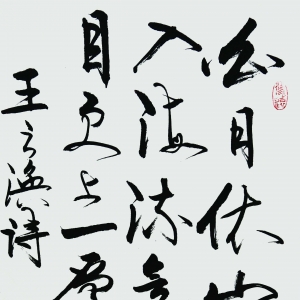 白日依山
入海流欲
目更上一层
王之涣诗